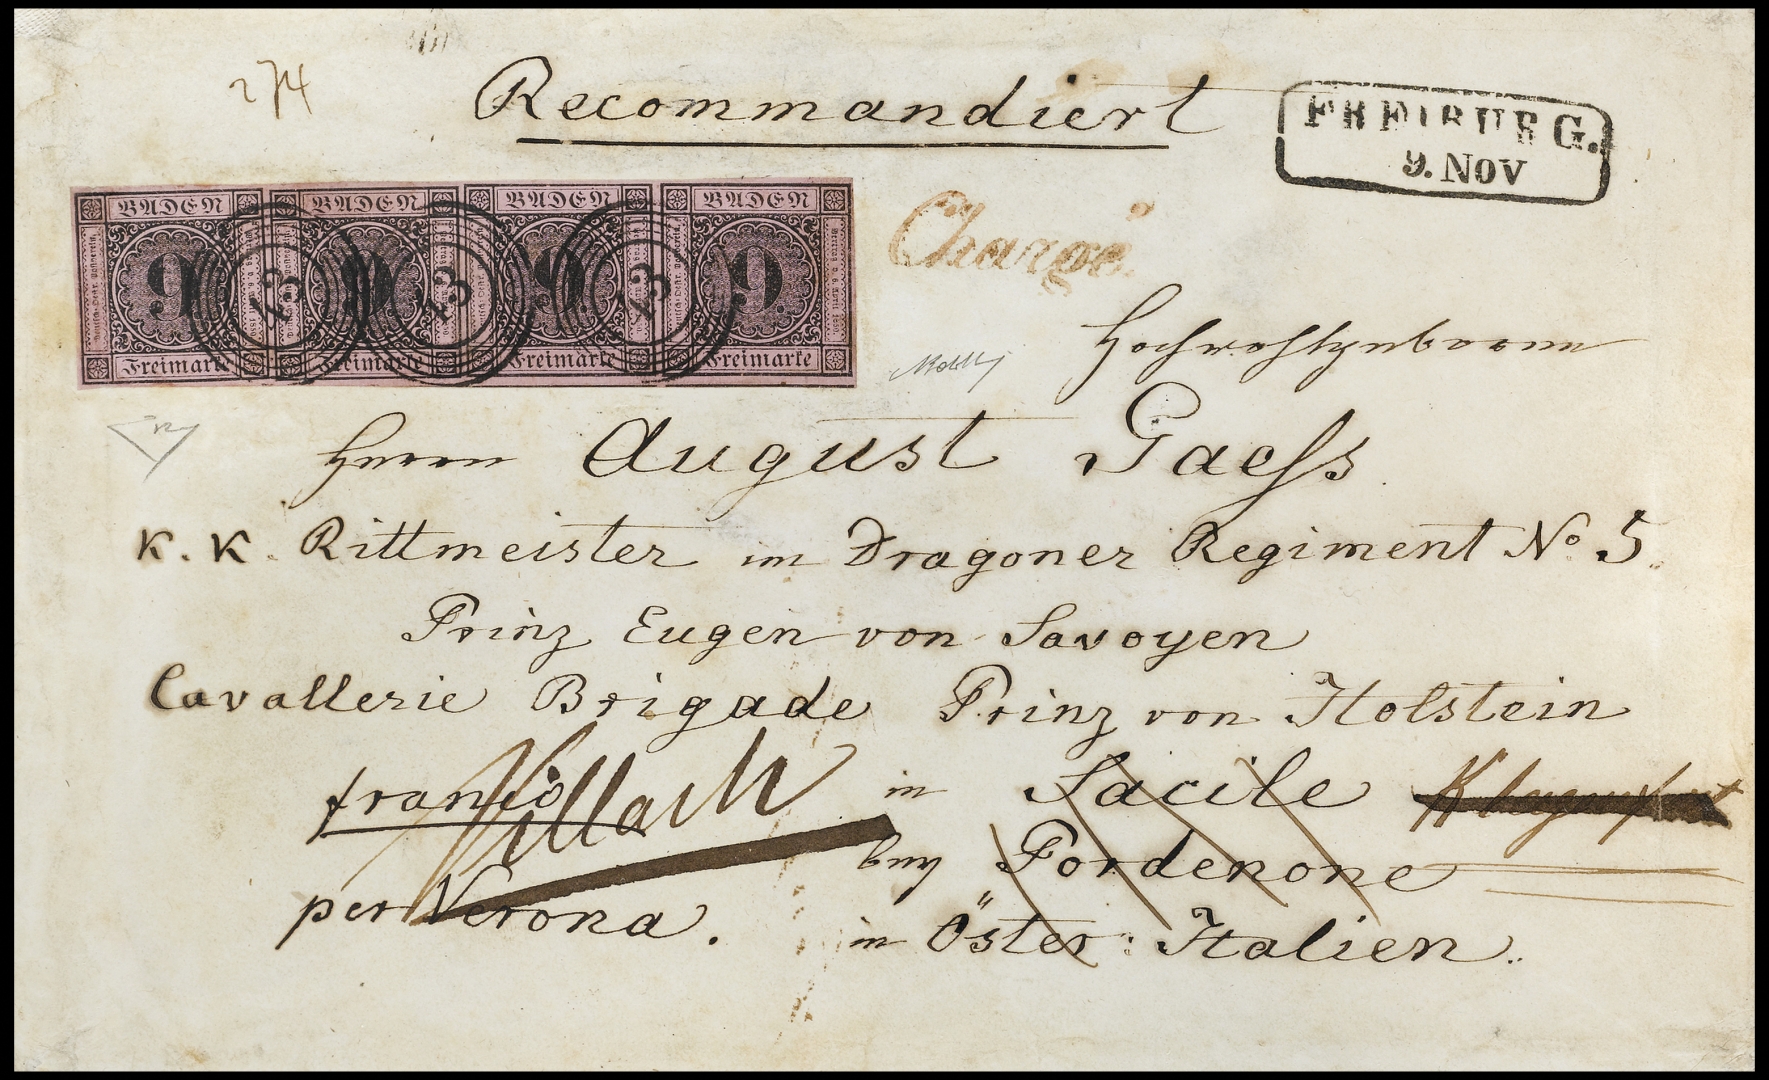 274
Recommandiert
FREIBURG.
9. NOV
BADEN BADEN BADEN BADEN
9 9 9 9
Freimarke Freimarke Freimarke Freimarke
43 43 43
Chargé.
Hochwohlgeboren
Herrn August Gaess
K. K. Rittmeister im Dragoner Regiment No 5.
Prinz Eugen von Savoyen
Cavallerie Brigade Prinz von Holstein
franco Villach in Sacile Klagenfurt
bey Pordenone
per Verona. in Öster: Italien.